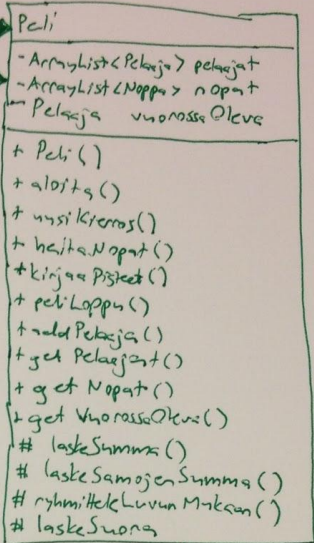 Peli
- ArrayList<Pelaaja> pelaajat
- ArrayList<Noppa> nopat
- Pelaaja vuorossaOleva
+ Peli()
+ aloita()
+ uusiKierros()
+ heitaNopat()
+ kirjaaPisteet()
+ peliLoppu()
+ addPelaaja()
+ get Pelaajat()
+ get Nopat()
+ get VuorossaOleva()
# laskeSumma()
# laskeSamojenSumma()
# ryhmitteleLuvunMukaan()
# laskeSuora